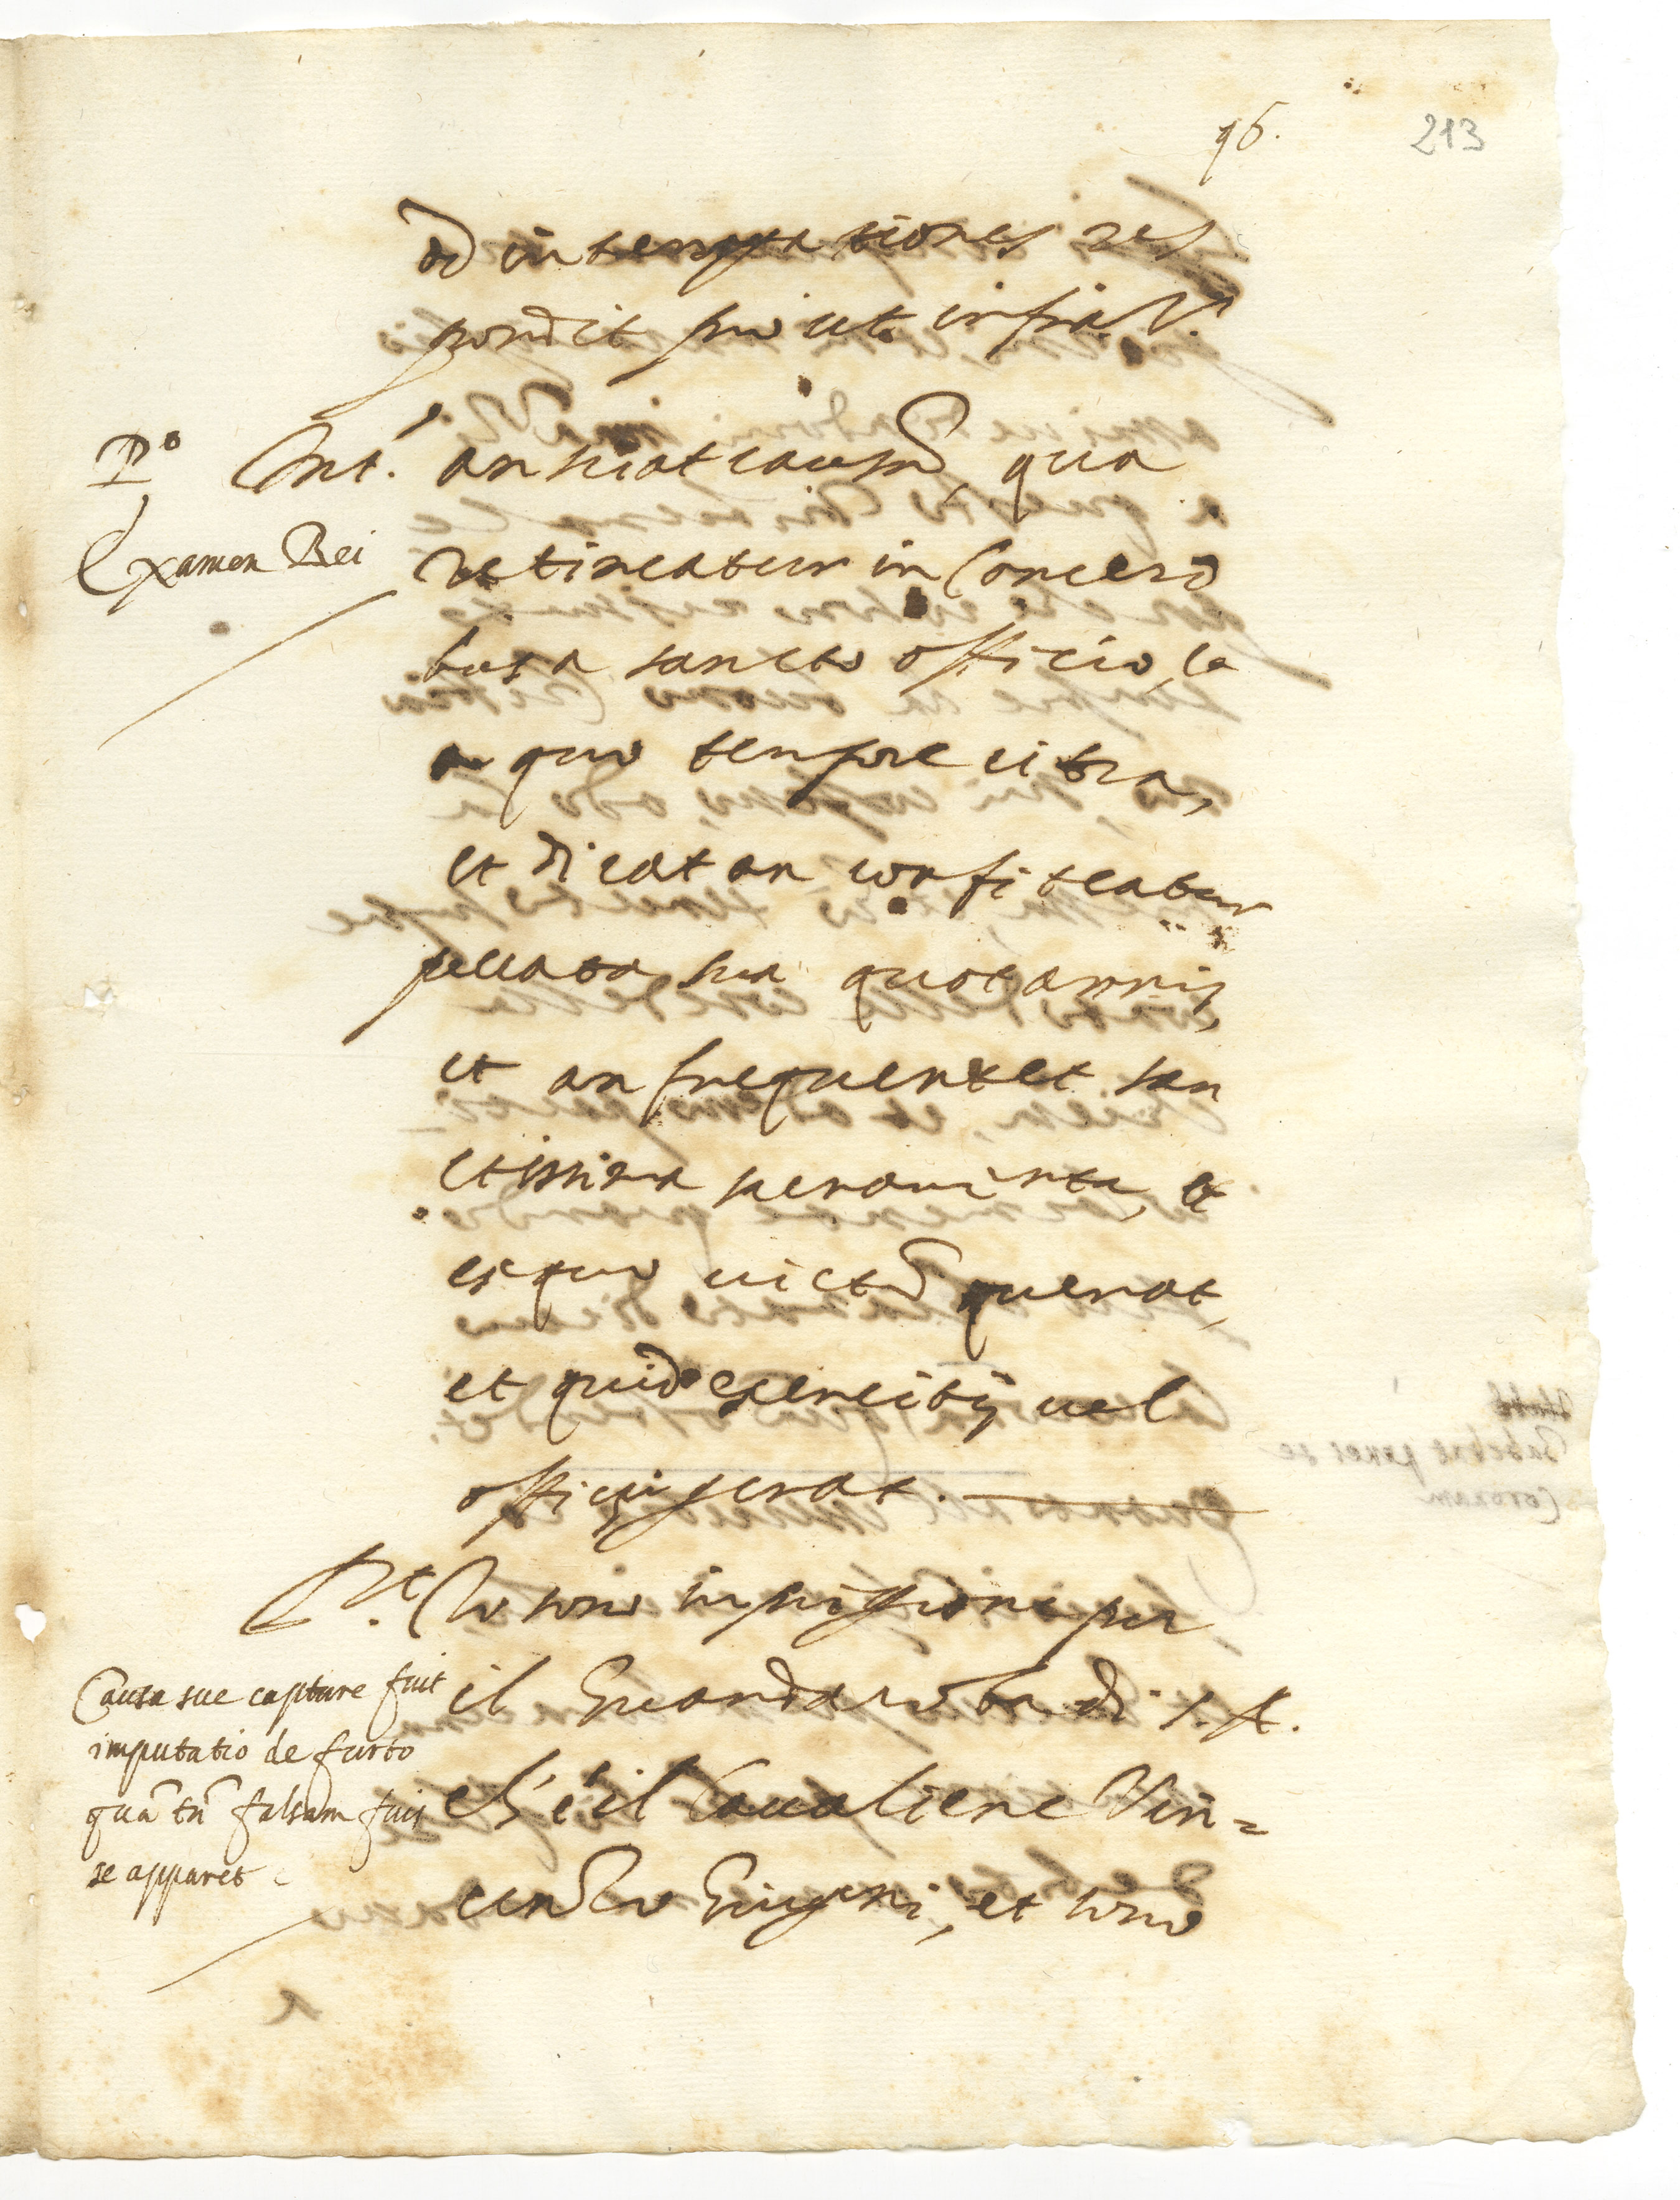 96.
213
ad interrogationes res
pondit prout infra V.
Pº
Int. an sciat causã, qua
Examen Rei
retineatur in Carcerõ
bus a sancto officio, &
a quo tempore citra,
et dicat an confiteatur
peccata sua quotannis,
et an frequentet san
ctissima sacramenta, et
ex quo victũ querat,
et quid exercitij vel
officij gerat.
Rt. Io sono in prigione per
il Guardaroba di S. A.
ch'è il Cavaliere Vin=
cenzo Giugni, et sono
Causa sue capture fuit
imputatio de furto
quã tñ falsam fuis
se apparet